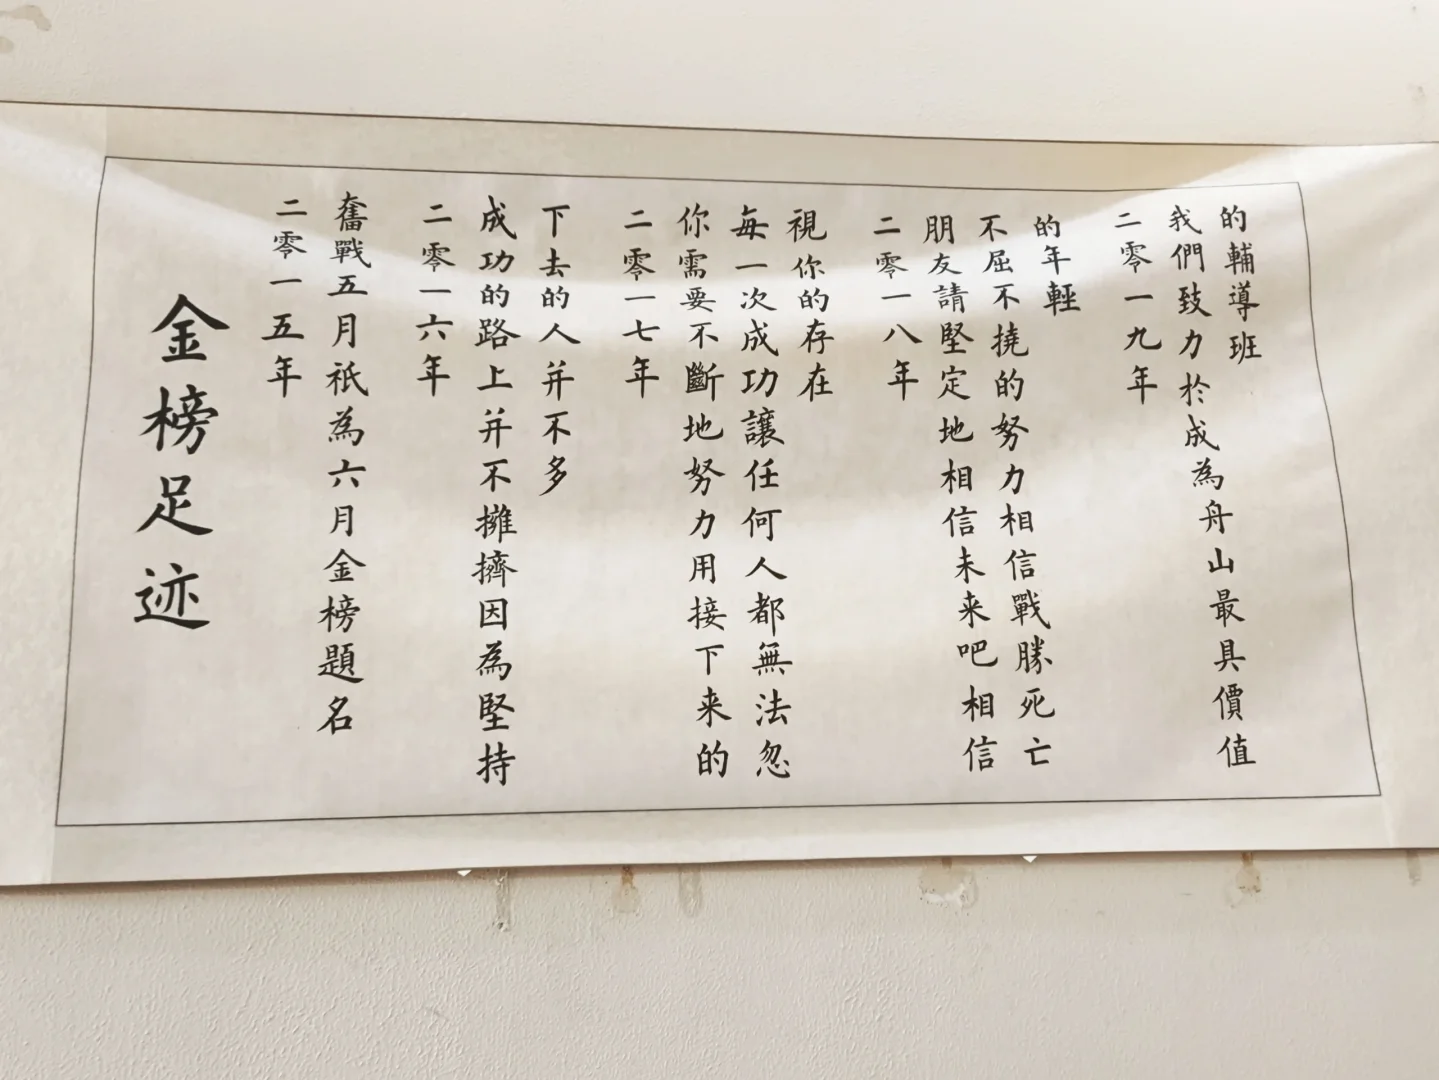 金榜足迹
二零一五年
奮戰五月祇為六月金榜題名
二零一六年
成功的路上并不擁擠因為堅持
下去的人并不多
二零一七年
你需要不斷地努力用接下来的
每一次成功讓任何人都無法忽
視你的存在
二零一八年
朋友請堅定地相信未来吧相信
不屈不撓的努力相信戰勝死亡
的年輕
二零一九年
我們致力於成為舟山最具價值
的輔導班